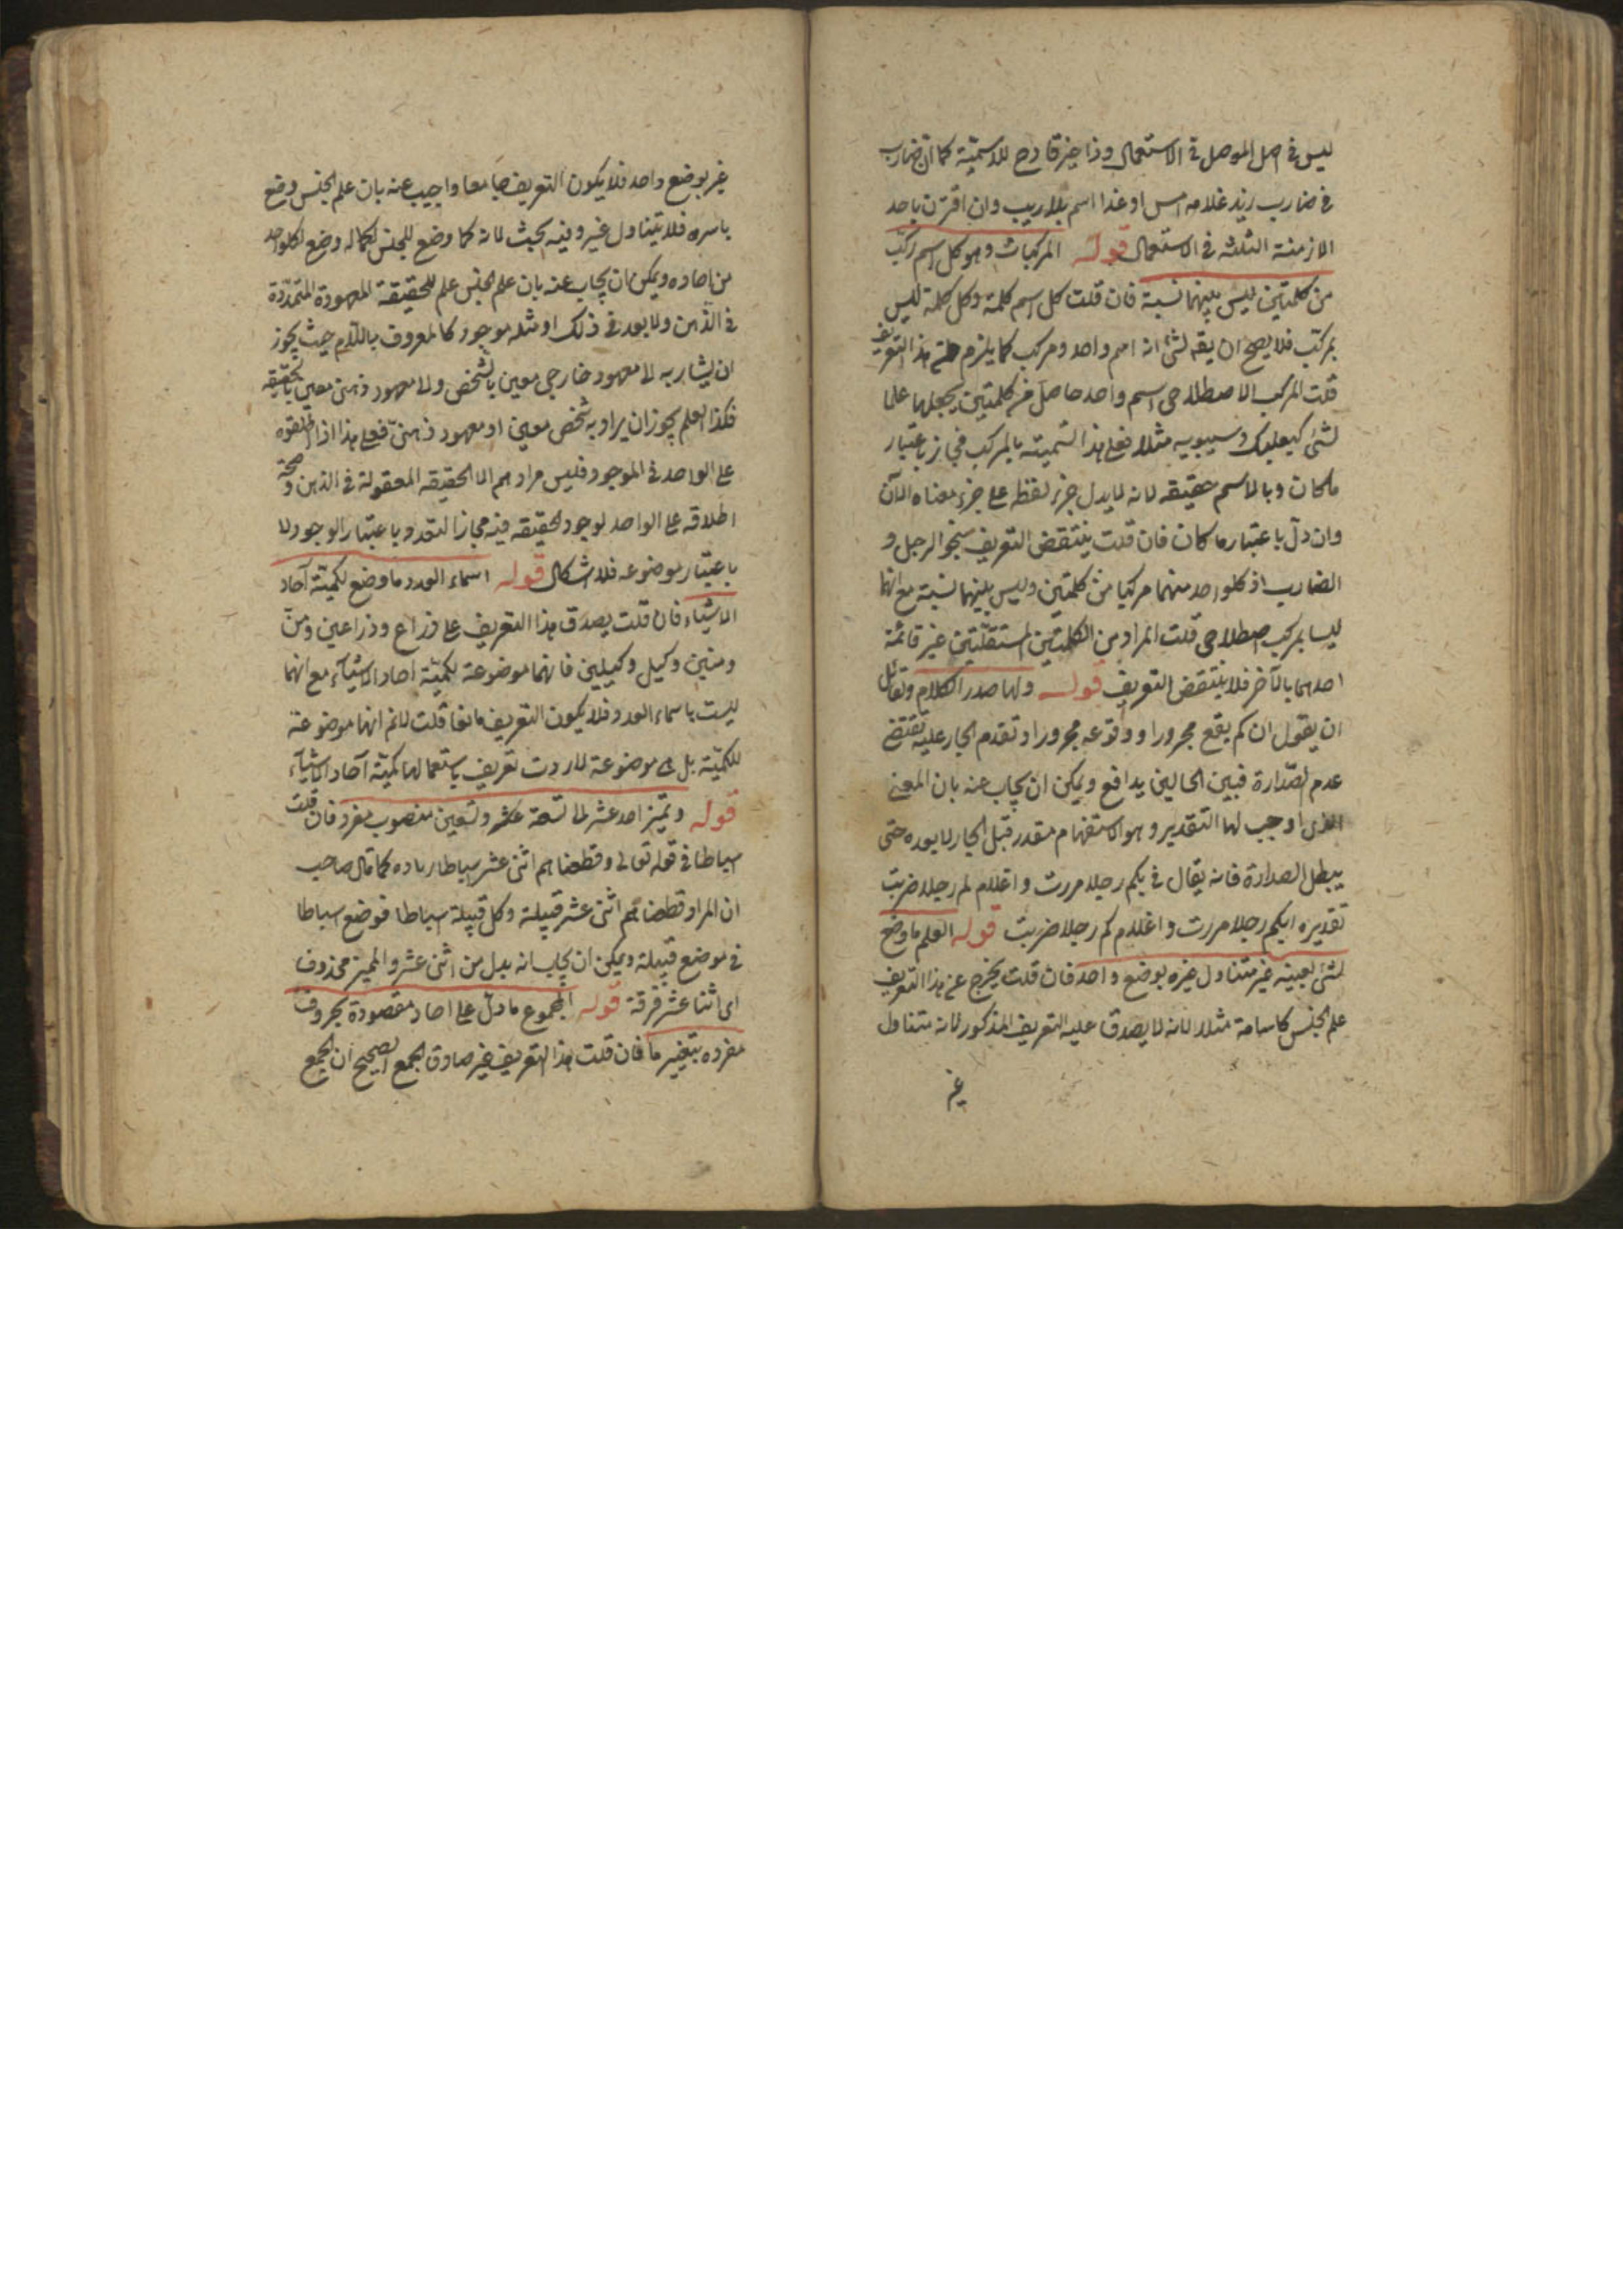 ليس فى اصل الموصل فى الاستعمال وذا غير قادح للاسمية كما ان ضارب
فى ضارب زيد غلامه امس او غدا اسم بلا ريب وان اقترن باحد
الازمنة الثلثه فى الاستعمال قوله المركبات وهو كل اسم ركب
من كلمتين ليس بينهما نسبة فان قلت كل اسم كلمة وكل كلمة ليس
بمركب فلا يصح ان يقه لشئ انه اسم واحد ومركب كما يلزم هذا التعريف
قلت المركب الاصطلاحى اسم واحد حاصل من كلمتين بجعلهما علما
لشئ كبعلبك وسيبويه مثلا فعلى هذا التسمية بالمركب مجاز باعتبار
ما كان وبالاسم حقيقه لانه لا يدل جزء لفظه على جزء معناه الآن
وان دل باعتبار ما كان فان قلت ينتقض التعريف بنحو الرجل و
الضارب اذ كلواحد منهما مركبا من كلمتين وليس بينهما نسبة مع انهما
ليسا بمركب اصطلاحى قلت المراد من الكلمتين المستقلتين غير قائمة
احدهما بالآخر فلا ينتقض التعريف قوله ولها صدر الكلام ولقائل
ان يقول ان كم يقع مجرورا ووقوعه مجرورا وتقدم الجار عليه تقتضى
عدم الصدارة فبين الحالين يدافع ويمكن ان يجاب عنه بان المعنى
الذى اوجب لها التقدير وهو الاستفهام مقدر قبل الجار لا بعده حتى
يبطل الصدارة فانه يقال فى بكم رجلا مررت واغلام كم رجلا ضربت
تقديره ابكم رجلا مررت واغلام كم رجلا ضربت قوله العلم ما وضع
لشئ بعينه غير متناول غيره بوضع واحد فان قلت يخرج عن هذا التعريف
علم الجنس كاسامة مثلا لانه لا يصدق عليه التعريف المذكور لانه متناول
غير
غير بوضع واحد فلا يكون التعريف جامعا واجيب عنه بان علم الجنس وضع
باسره فلا يتناول غير وفيه بحث لانه كما وضع للجنس بكماله وضع لكلواحد
من احاده ويمكن ان يجاب عنه بان علم الجنس علم للحقيقة المعهودة المتحدة
فى الذهن ولا بعد فى ذلك اذ مثله موجود كالمعروف باللام حيث يجوز
ان يشار به الى معهود خارجى معين بالشخص والى معهود ذهنى معين بالحقيقه
فكذا العلم يجوز ان يراد به شخص معين او معهود ذهنى فعلى هذا اذا اطلقوه
على الواحد فى الموجود فليس مرادهم الا الحقيقه المعقولة فى الذهن وصحة
اطلاقه على الواحد لوجود الحقيقه فيه مجازا لتعدد باعتبار الوجود لا
باعتبار موضوعه فلا اشكال قوله اسماء العدد ما وضع لكمية آحاد
الاشياء فان قلت يصدق هذا التعريف على ذراع وذراعين ومن
ومنين وكيل وكيلين فانهما موضوعة لكمية احاد الاشياء مع انهما
ليست باسماء العدد فلا يكون التعريف مانعا قلت لانم انها موضوعة
للكمية بل هى موضوعة لار دت تعريف باستعمالها كمية آحاد الاشياء
قوله وتميز احد عشر الى تسعة عشر وتسعين منصوب مفرد فان قلت
اسباطا فى قوله تعالى وقطعناهم اثنى عشر اسباطا راده كما قال صاحب
ان المراد قطعناهم اثنى عشر قبيلة وكل قبيلة اسباطا فوضع اسباطا
فى موضع قبيلة ويمكن ان يجاب انه بدل من اثنى عشر والمميز محذوف
اى اثنا عشر فرقة قوله المجموع ما دل على احاد مقصودة بحروف
مفرده بتغيير ما فان قلت هذا التعريف غير صادق لجمع الصحيح ان الجمع